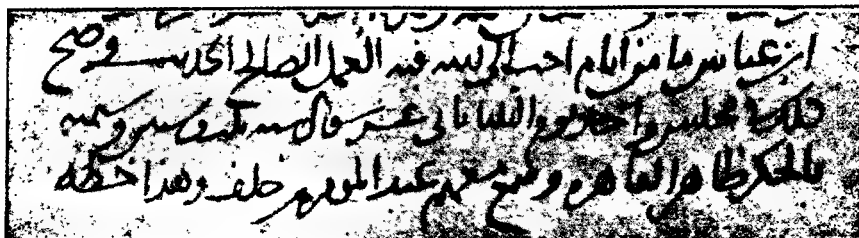 ابن عباس ما من ايام احب الى الله فيه العمل الصالح الحديث وصح
ذلك في مجلس واحد يوم الثلثا ثاني عشر شوال سنة وستين وستمية
بالحكر ظاهر القاهرة وسمع معهم عبد المومن خلف وهذا خطه